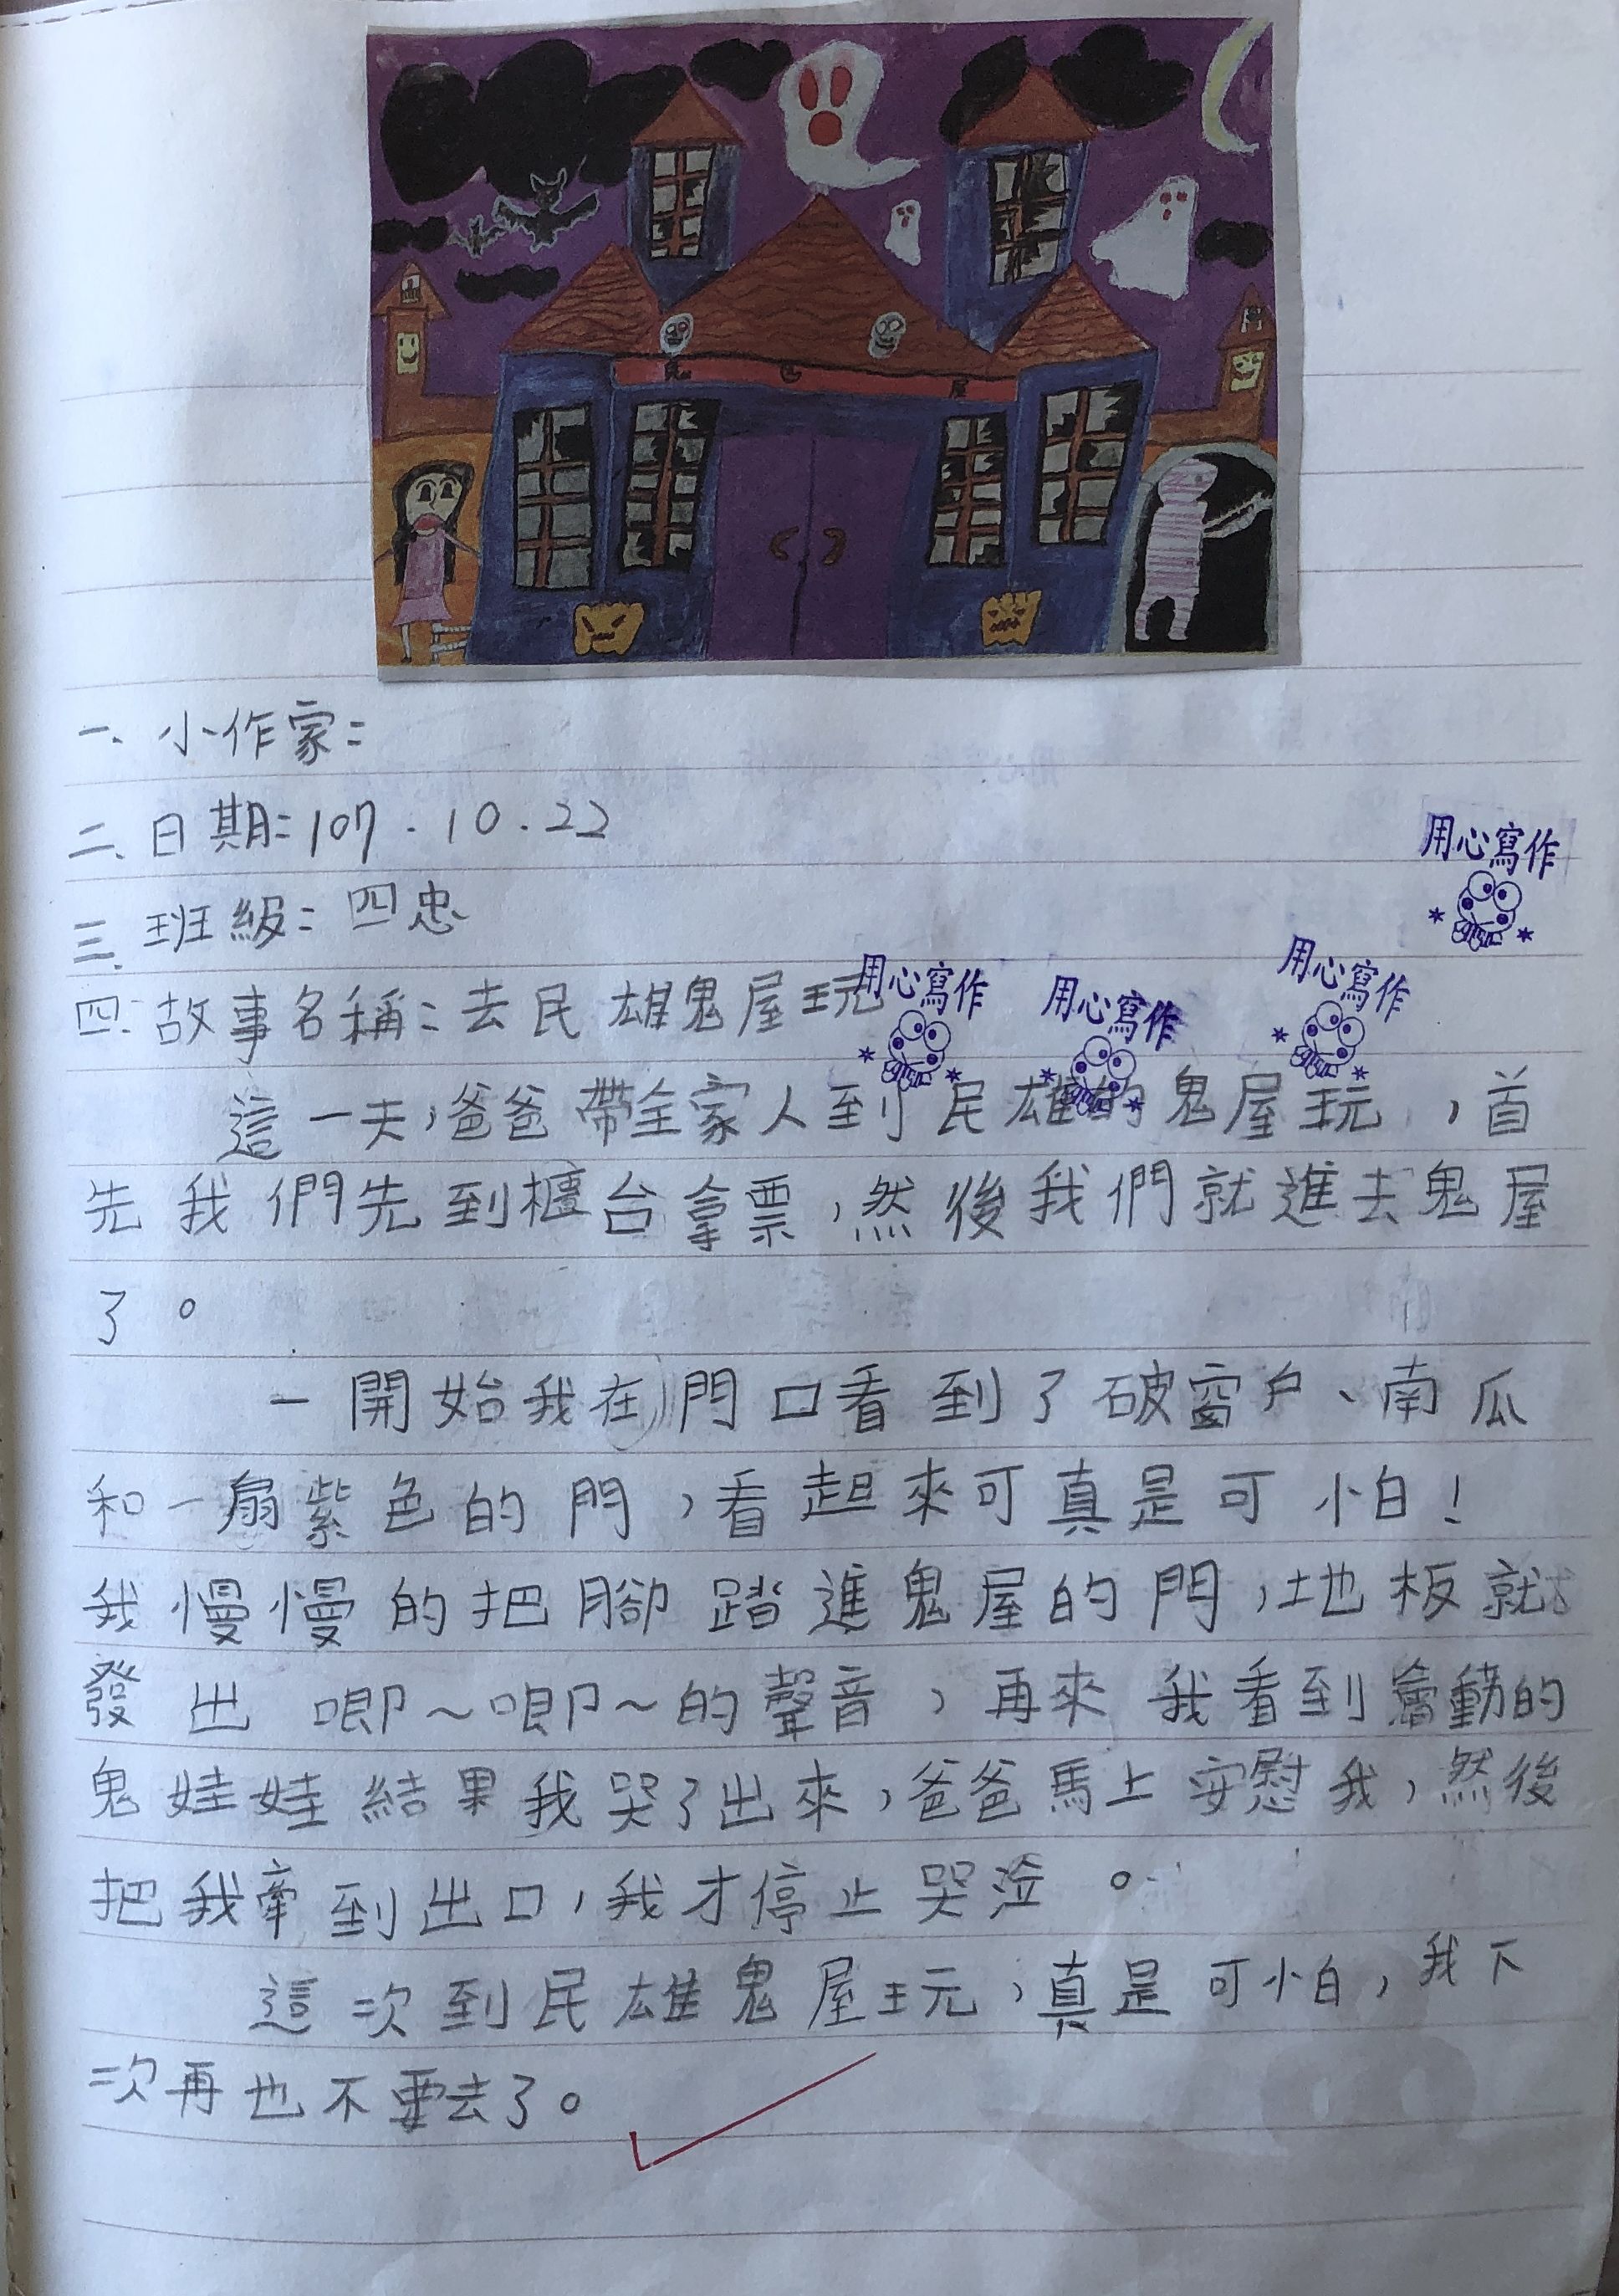 鬼 屋
一、小作家:
二、日期:107.10.22
三、班級:四忠
四、故事名稱:去民雄鬼屋玩
用心寫作
用心寫作
用心寫作
用心寫作
這一天,爸爸帶全家人到民雄的鬼屋玩,首
先我們先到櫃台拿票,然後我們就進去鬼屋
了。
一開始我在門口看到了破窗戶、南瓜
和一扇紫色的門,看起來可真是可怕!
我慢慢的把腳踏進鬼屋的門,地板就
發出唧~唧~的聲音,再來我看到會動的
鬼娃娃結果我哭了出來,爸爸馬上安慰我,然後
把我牽到出口,我才停止哭泣。
這次到民雄鬼屋玩,真是可怕,我下
次再也不要去了。